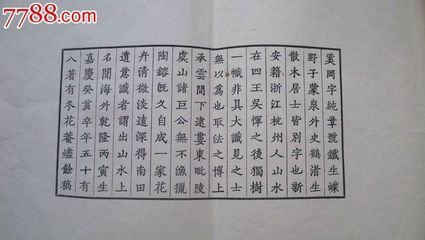 7788.com
奚岡字純章號鐵生蠓
野子蒙泉外史鶴渚生
散木居士皆別字也新
安籍浙江杭州人山水
在四王吳惲之後獨樹
一幟非具大識見之士
無以爲也取法之博上
承雲間下逮婁東毗陵
虞山諸巨公無不漁獵
陶鎔旣久自成一家花
卉清微淡遠深得南田
遺意識者謂出山水上
名聞海外乾隆丙寅生
嘉慶癸亥卒年五十有
八著有冬花菴燼餘稿